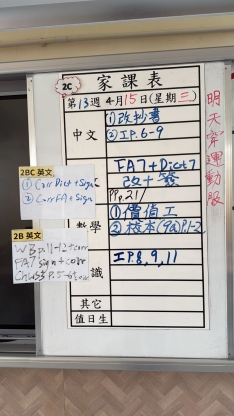 2C 家課表
第13週 4月15日(星期三)
中文
①改抄書
②工P.6-9
明天穿運動服
2BC 英文
① Corr Dict + Sign
② Corr FA + Sign
FA7+Dict7
改+簽
PP.21/
數學
①價值工
②校本(9a)P.1-2
2B 英文
WB p.11-12 + corr
FA7 sign + corr
識
工P.8,9,11
其它
值日生